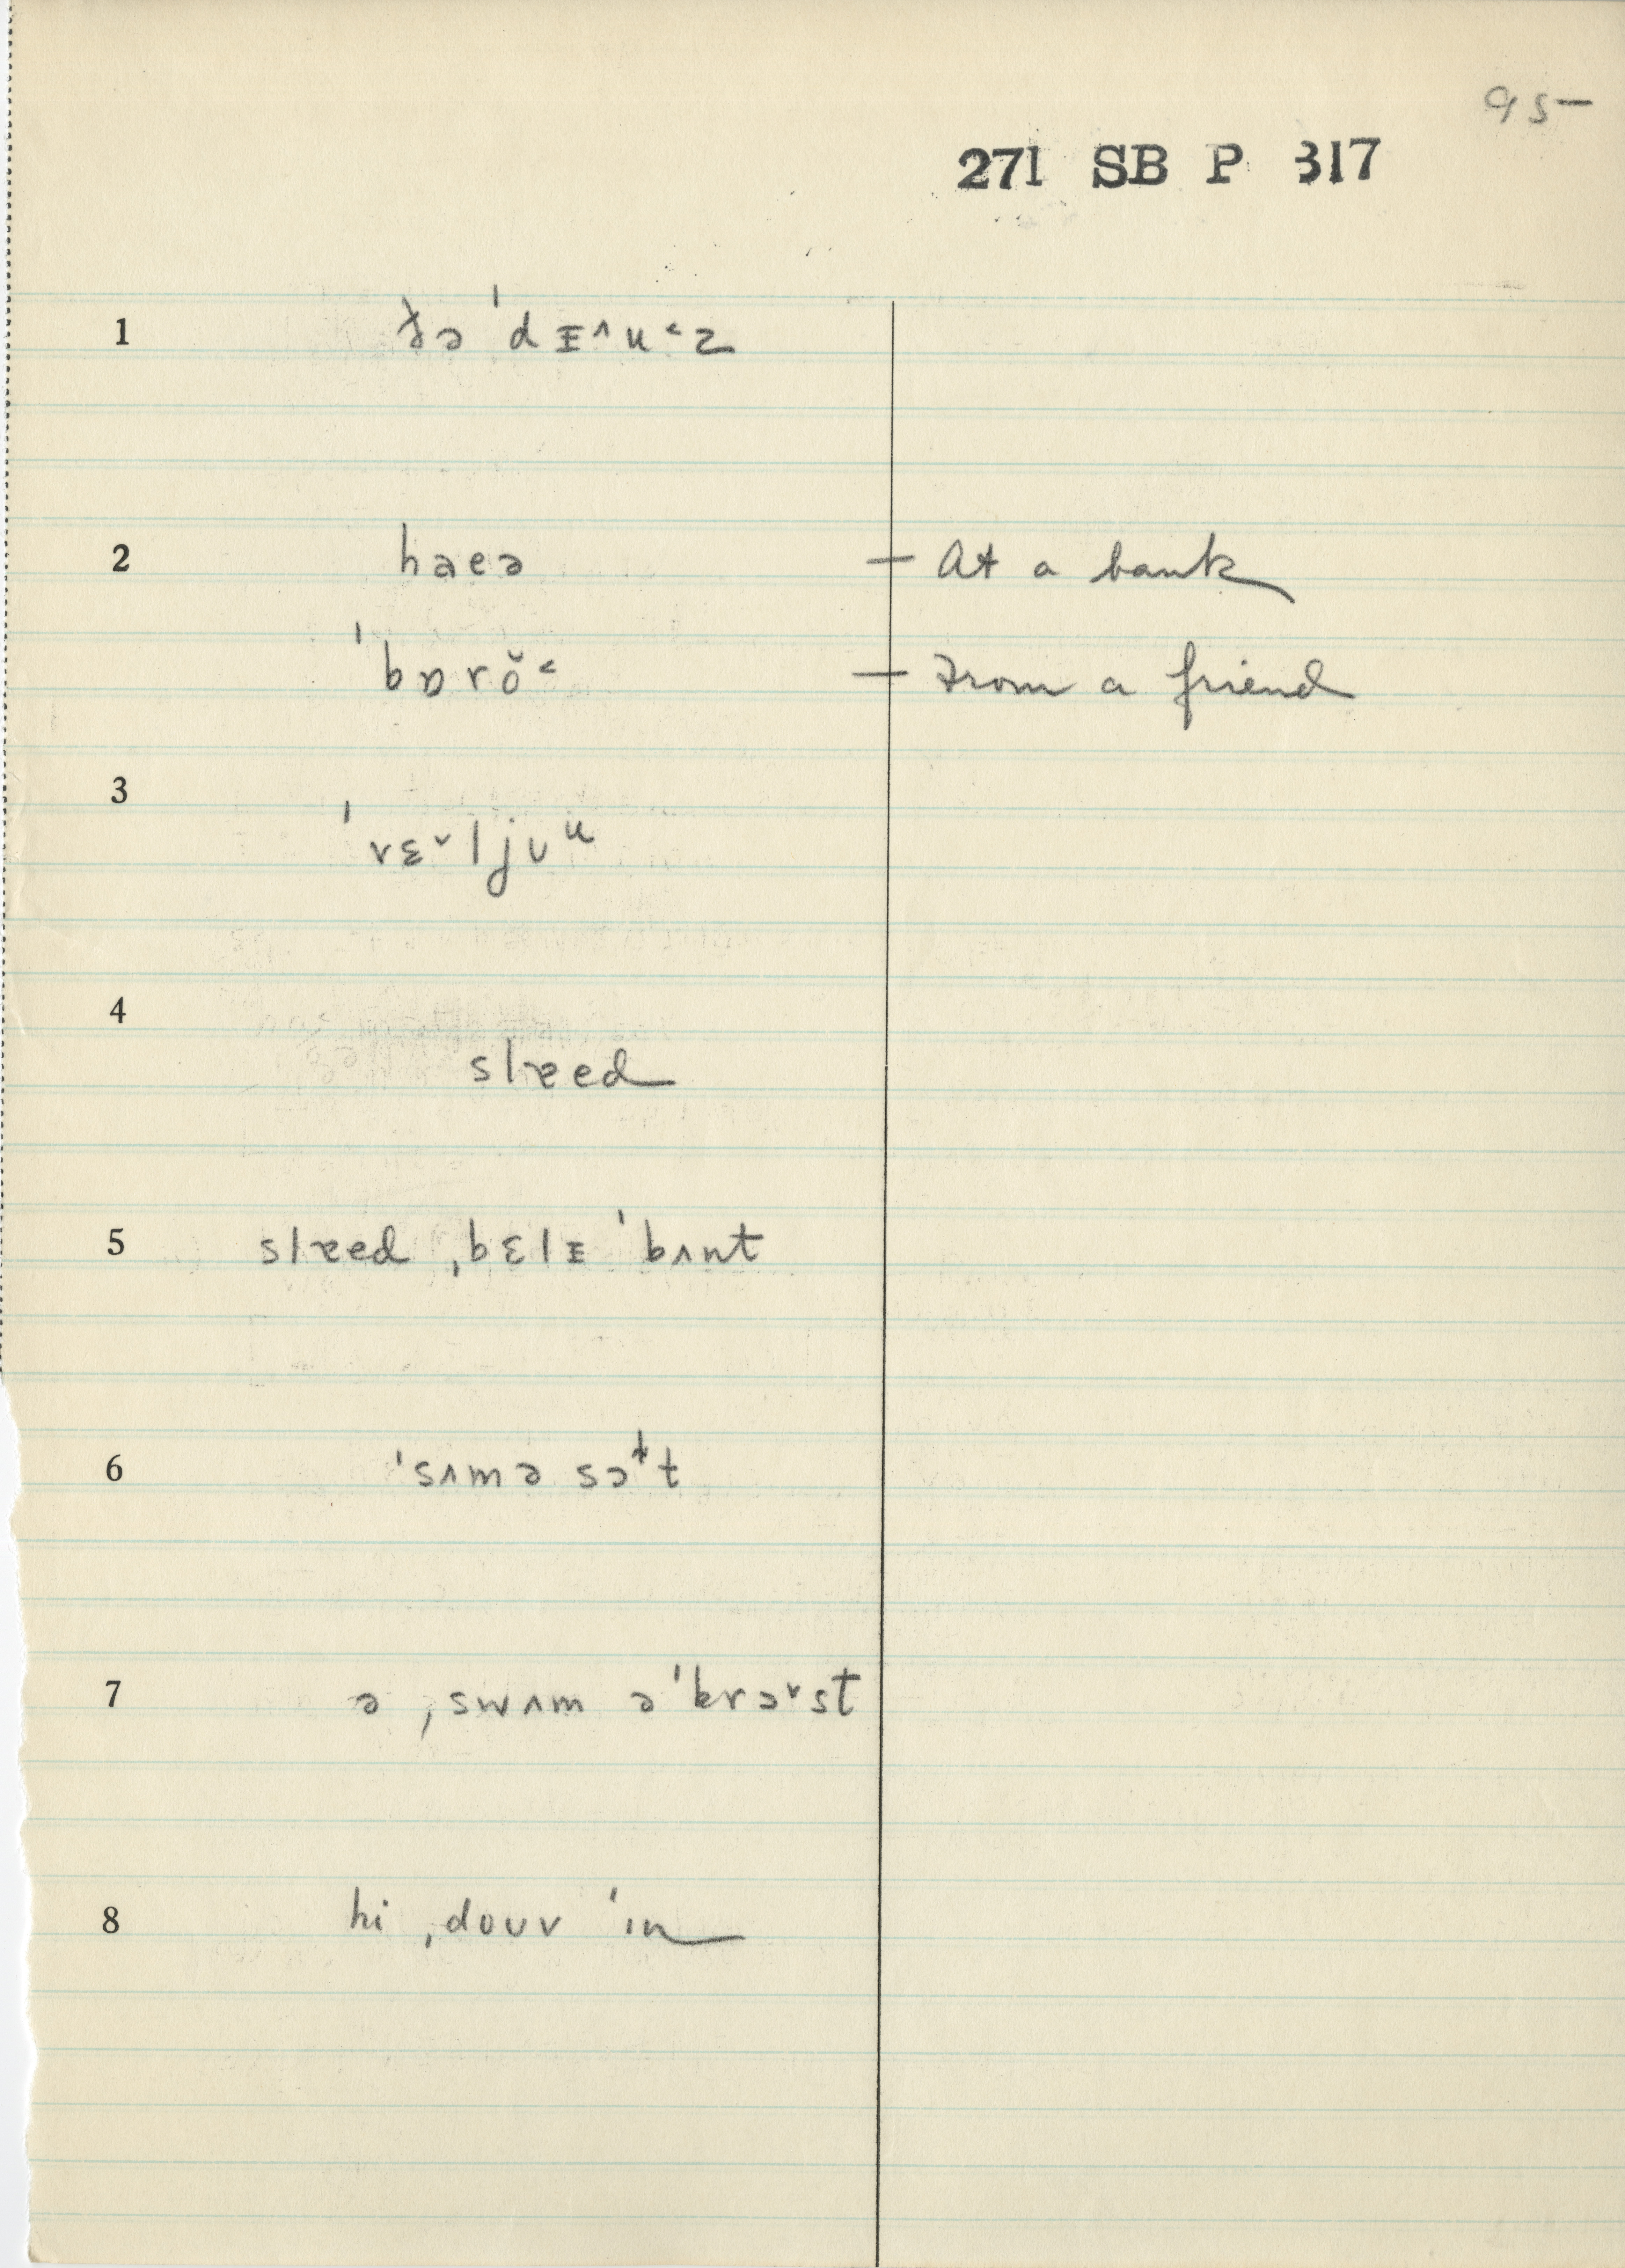 95—
271 SB P 317
1 ðə ˈdᵻ˄u˂z
2 haeə — At a bank
ˈbɒrŏ˂ — From a friend
3 ˈvɛ˅ljʊᵘ
4 slɐed
5 slɐed ˌbɛlᵻ ˈbʌnt
6 ˈsʌmə sɔt
7 ə ˌswʌm əˈkrɔ˅st
8 hi ˌdoʊv ˈin